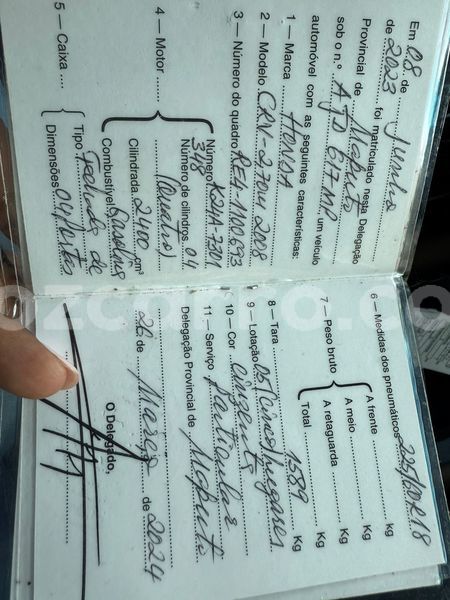 Em 08 de Junho
de 2023 foi matriculado nesta Delegação
Provincial de Maputo
sob o n.º AJD 617 MP, um veículo
automóvel com as seguintes características:
1 — Marca HONDA
2 — Modelo CRV-270M 2008
3 — Número do quadro RE4-1100693
4 — Motor
Número K24A-7301
348
Número de cilindros 04
(Quatro)
Cilindrada 2400 cm³
Combustível Gasolina
5 — Caixa
Tipo Fechada de
Dimensões 04 Portas
6 — Medidas dos pneumáticos 225/60R18
7 — Peso bruto
A frente Kg
A meio Kg
A retaguarda Kg
Total Kg
8 — Tara 1589 Kg
9 — Lotação 05 (Cinco) Lugares
10 — Cor Cinzenta
11 — Serviço Particular
Delegação Provincial de Maputo
26 de Março de 2024
O Delegado,